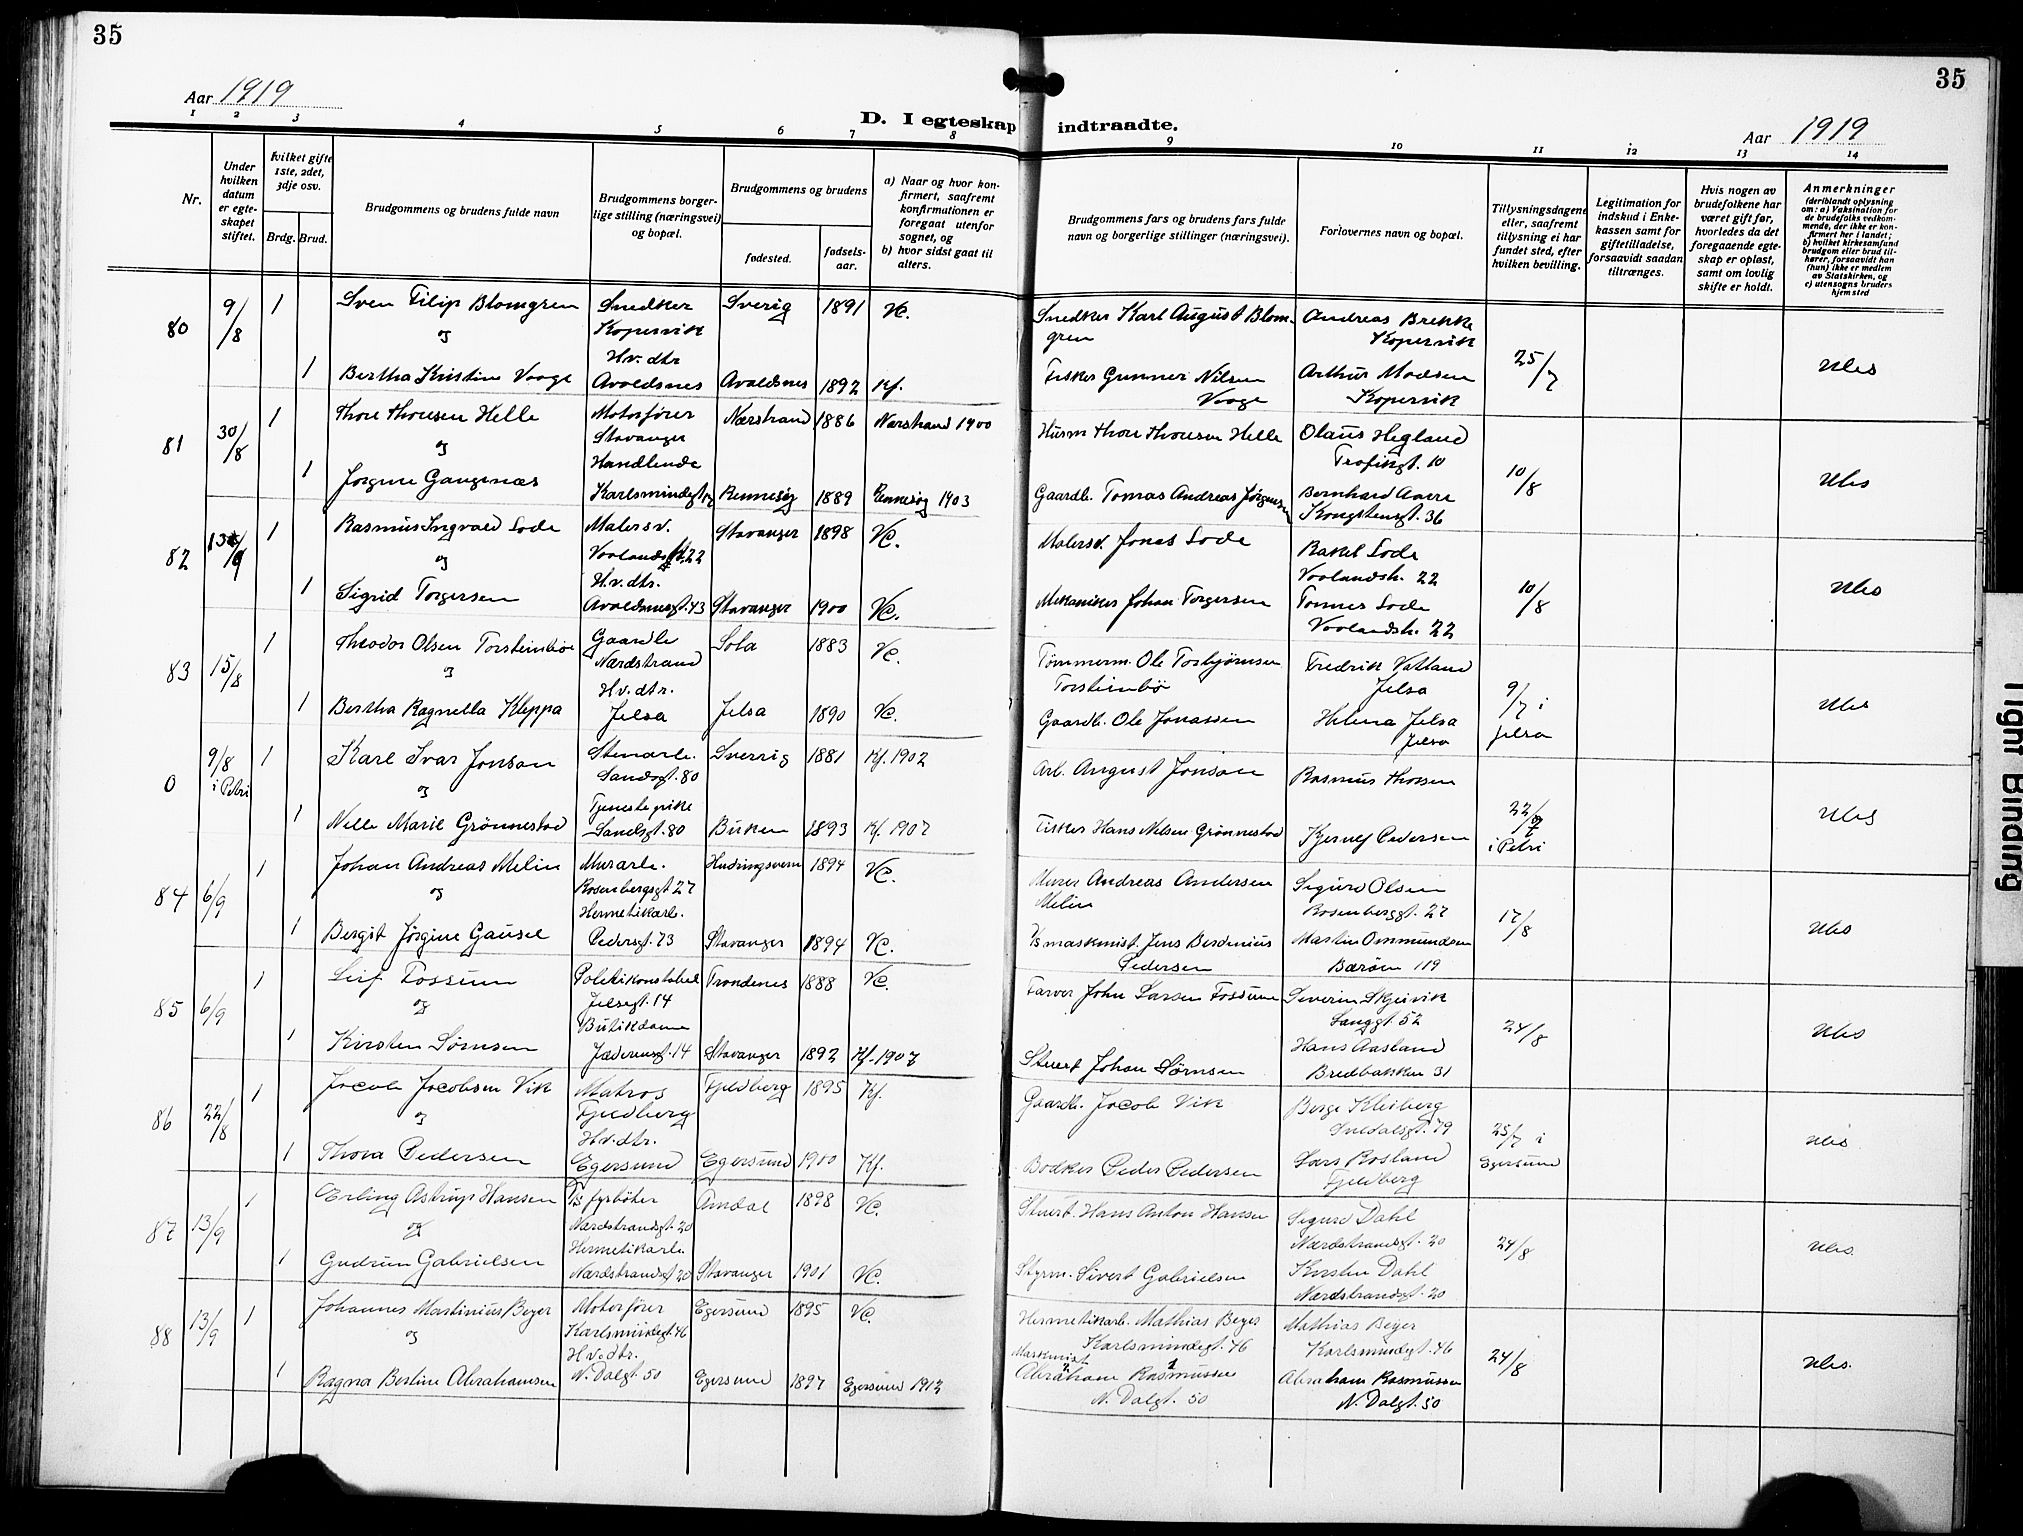 35
35
Aar 1919
D. I egteskap indtraadte.
Aar 1919
1 2 3 4 5 6 7 8 9 10 11 12 13 14
Nr.
Under hvilken datum er egteskapet stiftet.
Hvilket gifte 1ste, 2det, 3dje osv.
Brdg. Brud.
Brudgommens og brudens fulde navn
Brudgommens borgerlige stilling (næringsvei) og bopæl.
Brudgommens og brudens
fødested.
fødselsaar.
a) Naar og hvor konfirmert, saafremt konfirmationen er foregaat utenfor sognet, og
b) hvor sidst gaat til alters.
Brudgommens fars og brudens fars fulde navn og borgerlige stillinger (næringsvei).
Forlovernes navn og bopæl.
Tillysningsdagene eller, saafremt tillysning ei har fundet sted, efter hvilken bevilling.
Legitimation for indskud i Enkekassen samt for giftetilladelse, forsaavidt saadan tiltrænges.
Hvis nogen av brudefolkene har været gift før, hvorledes da det foregaaende egteskap er opløst, samt om lovlig skifte er holdt.
Anmerkninger
(deriblandt oplysning om: a) Vaksination for de brudefolks vedkommende, der ikke er konfirmert her i landet;
b) hvilket kirkesamfund brudgom eller brud tilhører, forsaavidt han (hun) ikke er medlem av Statskirken, og
c) utensogns bruders hjemsted
80 9/8 1 Sven Filip Blomgren Snedker Sverig 1891 Vc. Snedker Karl August Blom- Andreas Brekke
og Kopervik gren Kopervik
Hv. dtr 25/7
1 Bertha Kristine Vaage Avaldsnes Avaldsnes 1892 Kf. Fisker Gunner Nilsen Arthur Madsen
Vaage Kopervik
81 30/8 1 Thore Thoresen Helle Motorfører Nærstrand 1886 Nærstrand 1900 Husm Thore Thoresen Helle Olaus Hegland
og Stavanger
Handlende 10/8
1 Jørgine Gangenæs Karlsmindegt Rennesøy 1889 Rennesøy 1903 Gaardb. Tomas Andreas Jørgensen Bernhard
Kongstensgt. 36
82 1 Rasmus Ingvald Lode Malersv. Stavanger 1898 Vc. Malersv. Jonas Lode Rakel Lode
og 22 Voolandsk. 22
Hv. dtr. 10/8
1 Sigrid Torgersen Avaldsnesgt. 43 Stavanger 1900 Vc. Mekaniker Johan Torgersen Tomes Lode
Voolandsk. 22
83 15/8 1 Theodor Olsen Torsteinbø Gaardb Sola 1883 Vc. Tømmerm. Ole Torbjørnsen Fredrik Vatland
og Nærdstrand Torsteinbø Jelsa
Hv. dtr. 9/7 i Jelsa
1 Bertha Ragnella Kleppa Jelsa Jelsa 1890 Vc. Gaardb. Ole Jonassen Helena Jelsa
Jelsa
0 9/8 i Petri 1 Karl Ivar Jonson Stenarb. Sverrig 1881 Kf. 1902 Arb. August Jonson Rasmus Thorsen
og Sandsgt. 80
Tjenestepike 22/7 i Petri
1 Nelle Marie Grønnestad Sandsgt. 80 Buken 1893 Kf. 1907 Fisker Hans Nelsen Grønnestad Pedersen
84 6/9 1 Johan Andreas Melin Murarb. 1894 Vc. Murer Andreas Andersen Sigurd Olsen
og Rosenbergsgt 27 Melin Rosenberggt. 27
Hermetikarb. 17/8
1 Bergit Jørgine Gausel Pedersgt. 73 Stavanger 1894 Vc. maskinist. Jens Berdinius Martin Ommundsen
Pedersen Bærøen 119
85 6/9 1 Leif Fossum Politikonstabel Trondenes 1888 Vc. Farver John Larsen Fossum Severin Skjeivik
og Jelsegt. 14 Langgt. 52
Butikdame 24/8 Hans Aasland
1 Kirsten Sørnsen Jæderensgt. 14 Stavanger 1892 Kf. 1907 Stuert Johan Sørnsen Bredbakken 31
86 22/8 1 Jacob Jacobsen Vik Matros Fjeldberg 1895 Kf. Gaardb. Jacob Vik Berge Kleiberg
og Fjeldberg Sueldalsgt. 79
Hv. dtr. 25/7 i Egersund
1 Thora Pedersen Egersund Egersund 1900 Kf. Bødker Peder Pedersen Lars Rosland
Fjeldberg
87 13/9 1 Erling Astrup Hansen fyrbøter Arndal 1898 Vc. Stuert. Hans Anton Hansen Sigurd Dahl
og Nærdstrandsgt. 20 Nærdstrandsgt. 20
Hermetikarb 24/8
1 Gudrun Gabrielsen Nærdstrandsgt 20 Stavanger 1901 Vc. Styrm. Sivert Gabrielsen Kirsten Dahl
Nærdstrandsgt. 20
88 13/9 1 Johannes Martinius Beyer Motorfører Egersund 1895 Vc. Hermetikarb. Mathias Beyer Mathias Beyer
og Karlsmindegt. 46 Karlsmindegt. 46 Karlsmindegt. 46
Hv. dtr. Maskinist 24/8
1 Ragna Bertine Abrahamsen N. Dalgt. 50 Egersund 1897 Egersund 1912 Abraham Rasmussen Abraham Rasmussen
N. Dalgt. 50 N. Dalgt. 50
Tight Binding